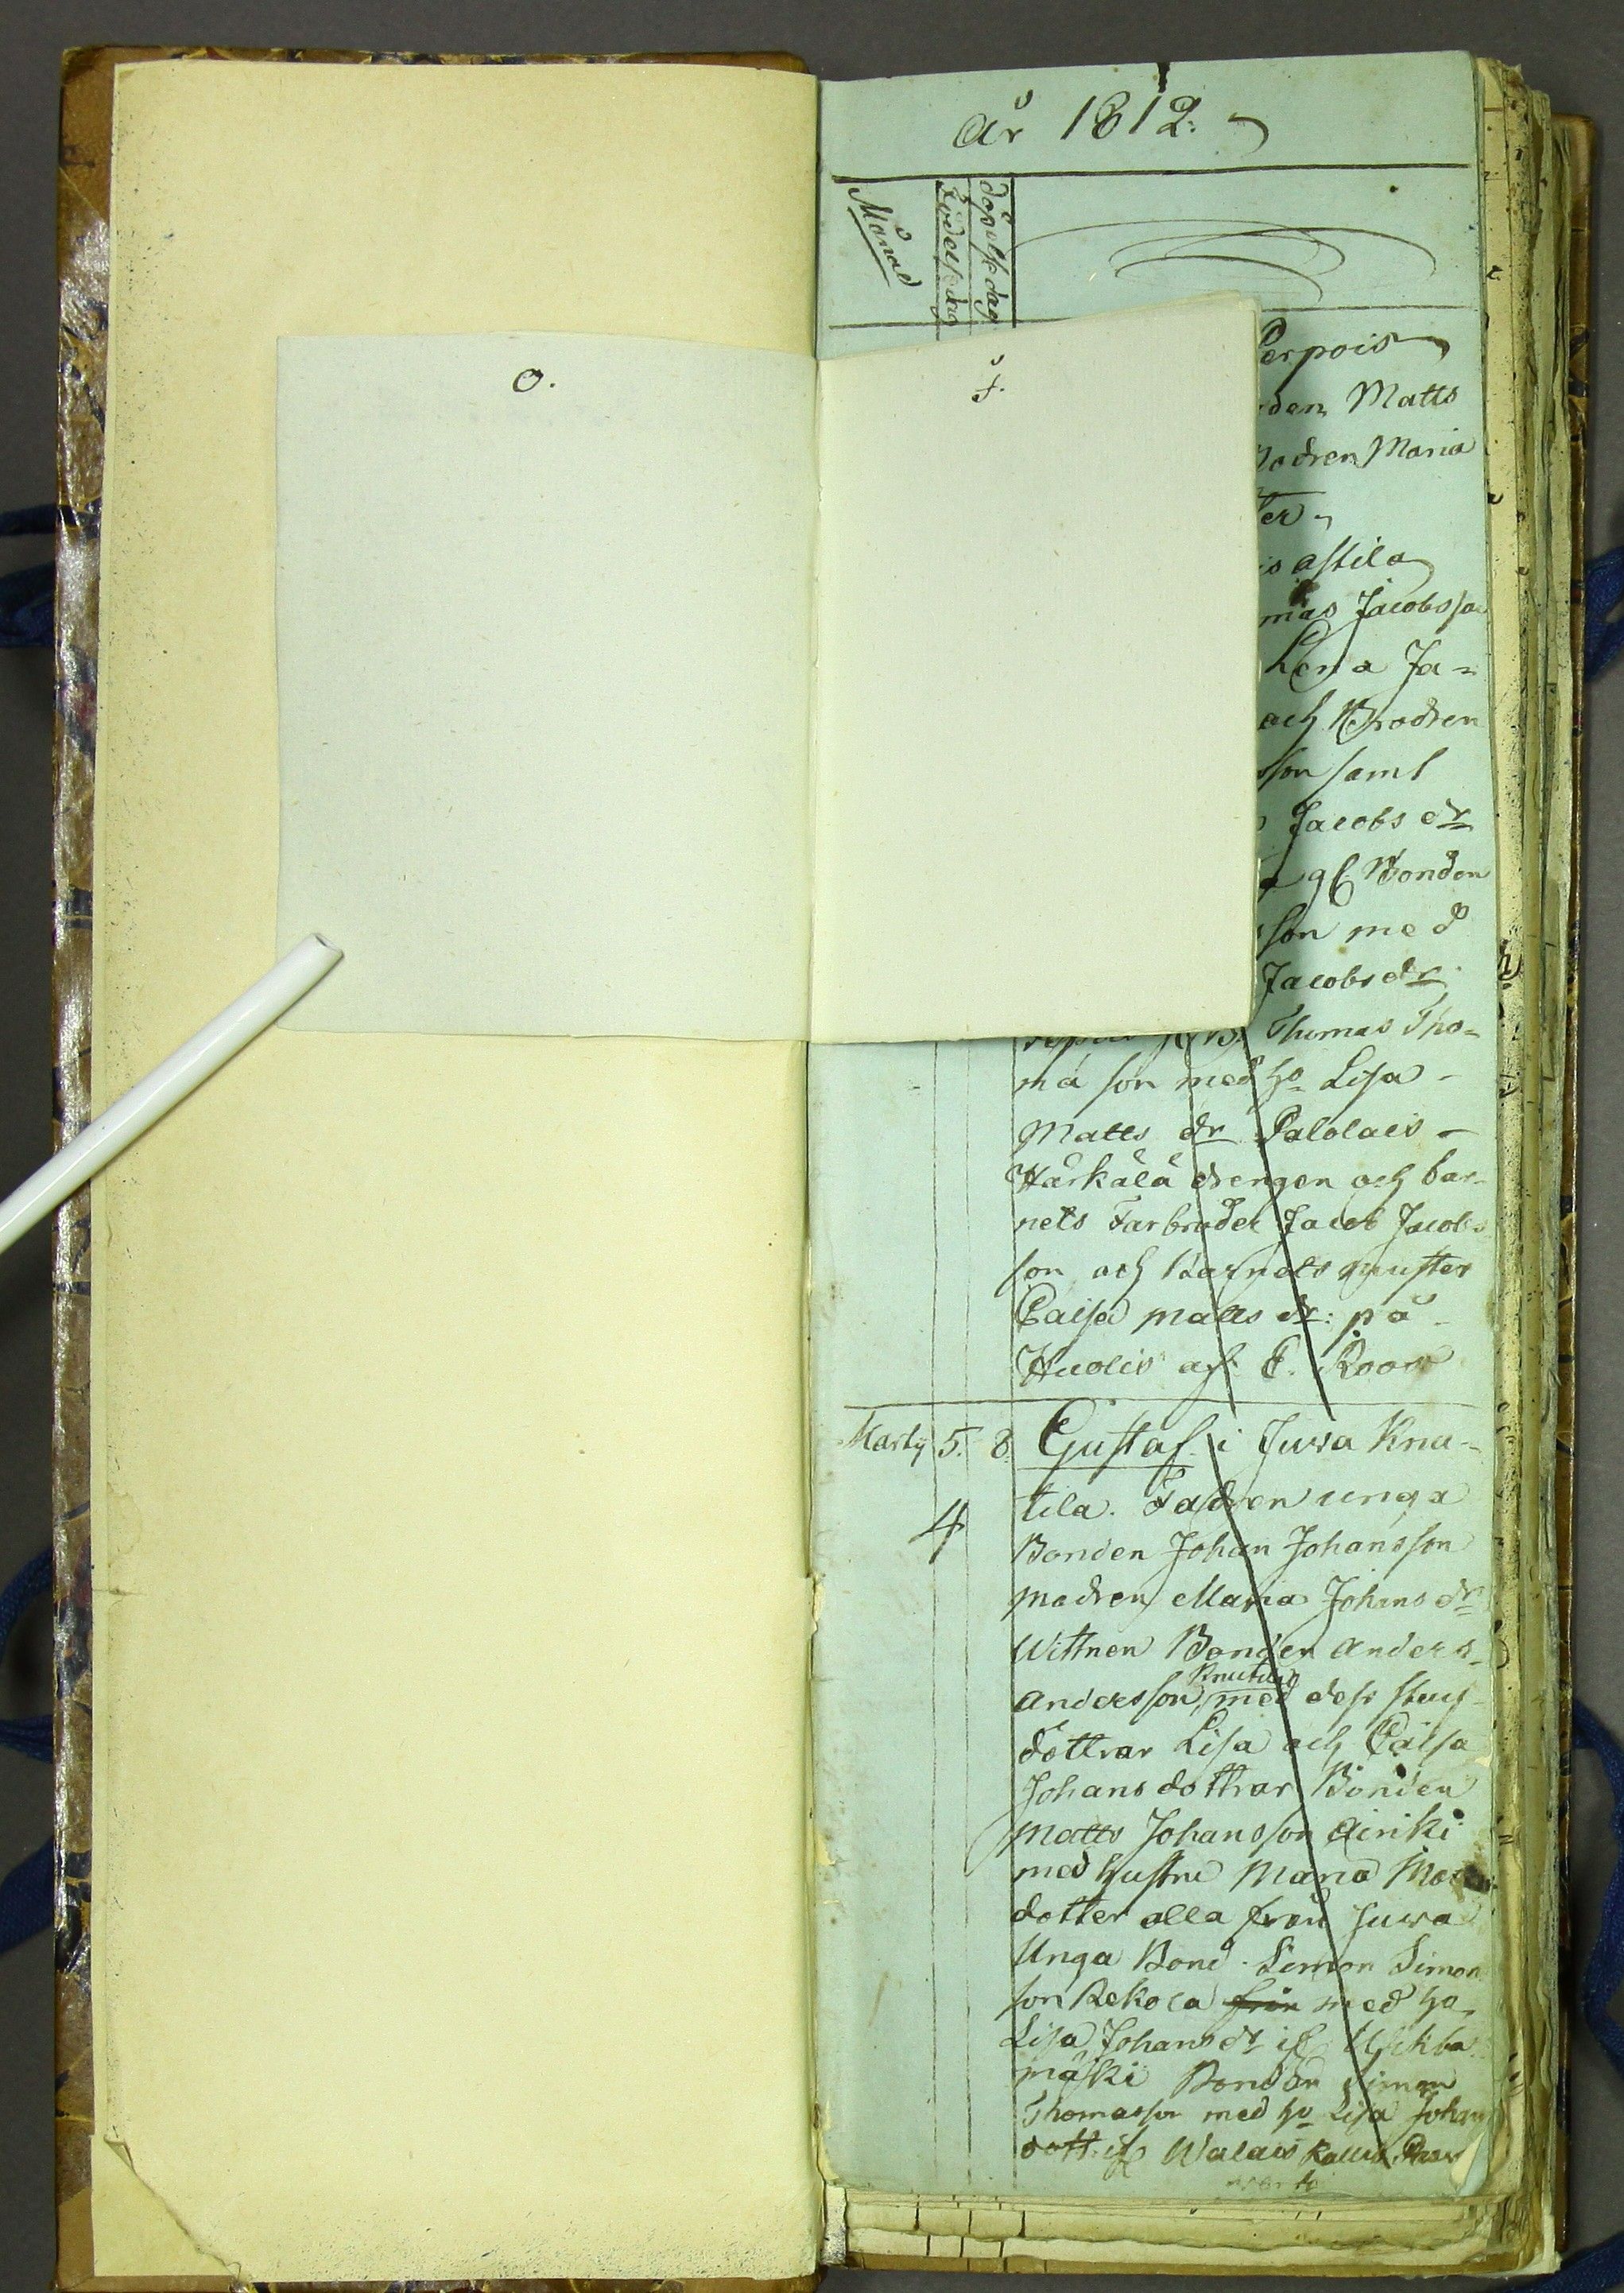 År 1812.
Månad
Födelsedag
döpelsedag
O.
f.
Perpois
den Matts
Modren Maria
ter
is astila
mas Jacobsson
Lena Ja=
och Brodren
sson samt
Jacobs dr
gl. Bonden
son med
Jacobs dr.
Thomas Tho=
ma son med ho Lisa
Matts dr Palolais
Härkälä drengen och bar-
nets Farbroder Jacob Jacobs
son och Barnets muster
Caisa Matts dr: på
Huolis af E. Roos
Martij 5. 8. Gustaf i Juva Knu-
tila. Fadren unga
4
Bonden Johan Johansson
modren Maria Johans dr
Wittnen Bonden Anders
Knutila
Andersson med dess stuf-
döttrar Lisa och Caisa
Johans dottrar Bonden
Matts Johansson Äiriki
med hustru Maria
dotter alla från Juwa
Unga Bond. Simon Simon
son Rekola från med ho
Lisa Johans dr
mäki Bonden Simon
Thomasson med ho Lisa Johans
dott. Walais Kallis